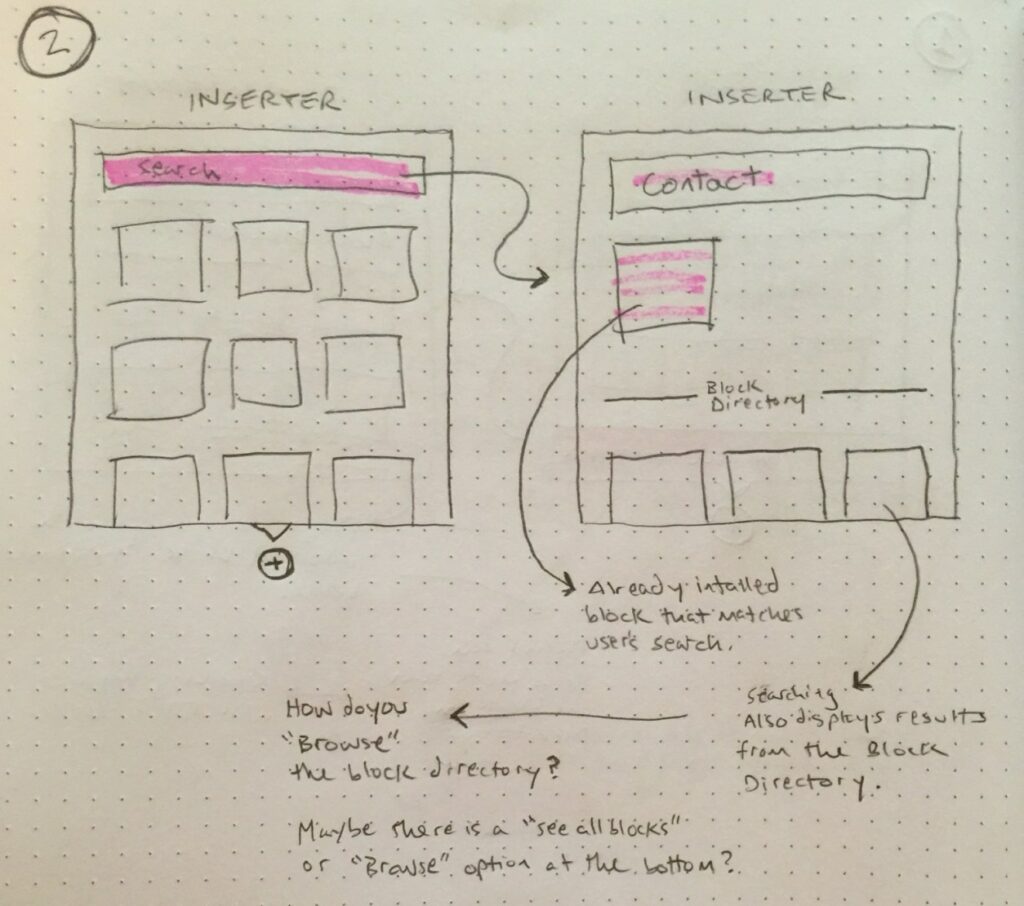 2
INSERTER
INSERTER
search
Contact
Block
Directory
Already intalled
block that matches
user's search.
searching
Also displays results
from the Block
Directory.
How do you
"Browse"
the block directory?
Maybe there is a "see all blocks"
or "Browse" option at the bottom?